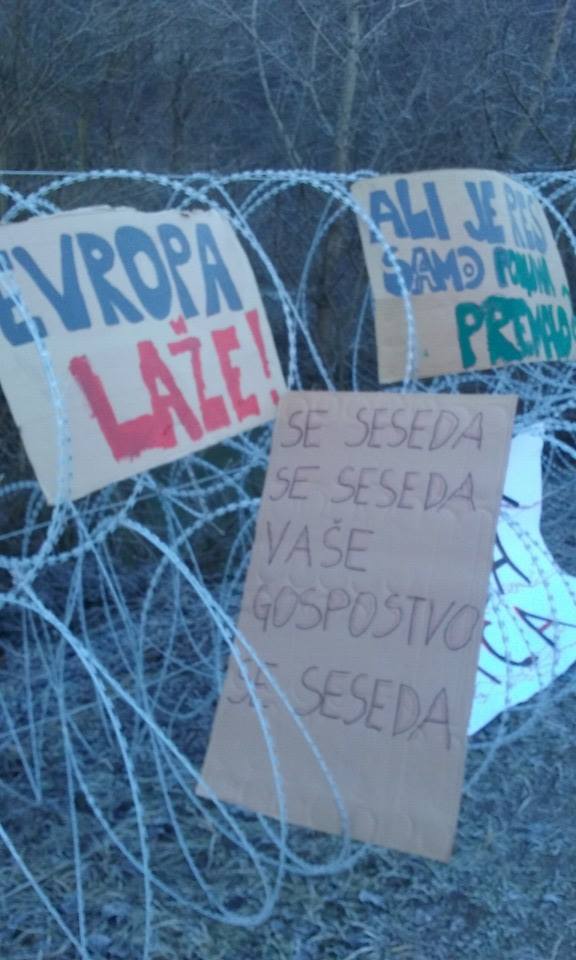 EVROPA
LAŽE!
ALI JE RES
SAMO
PREMALO
SE SESEDA
SE SESEDA
VAŠE
GOSPOSTVO
SE SESEDA